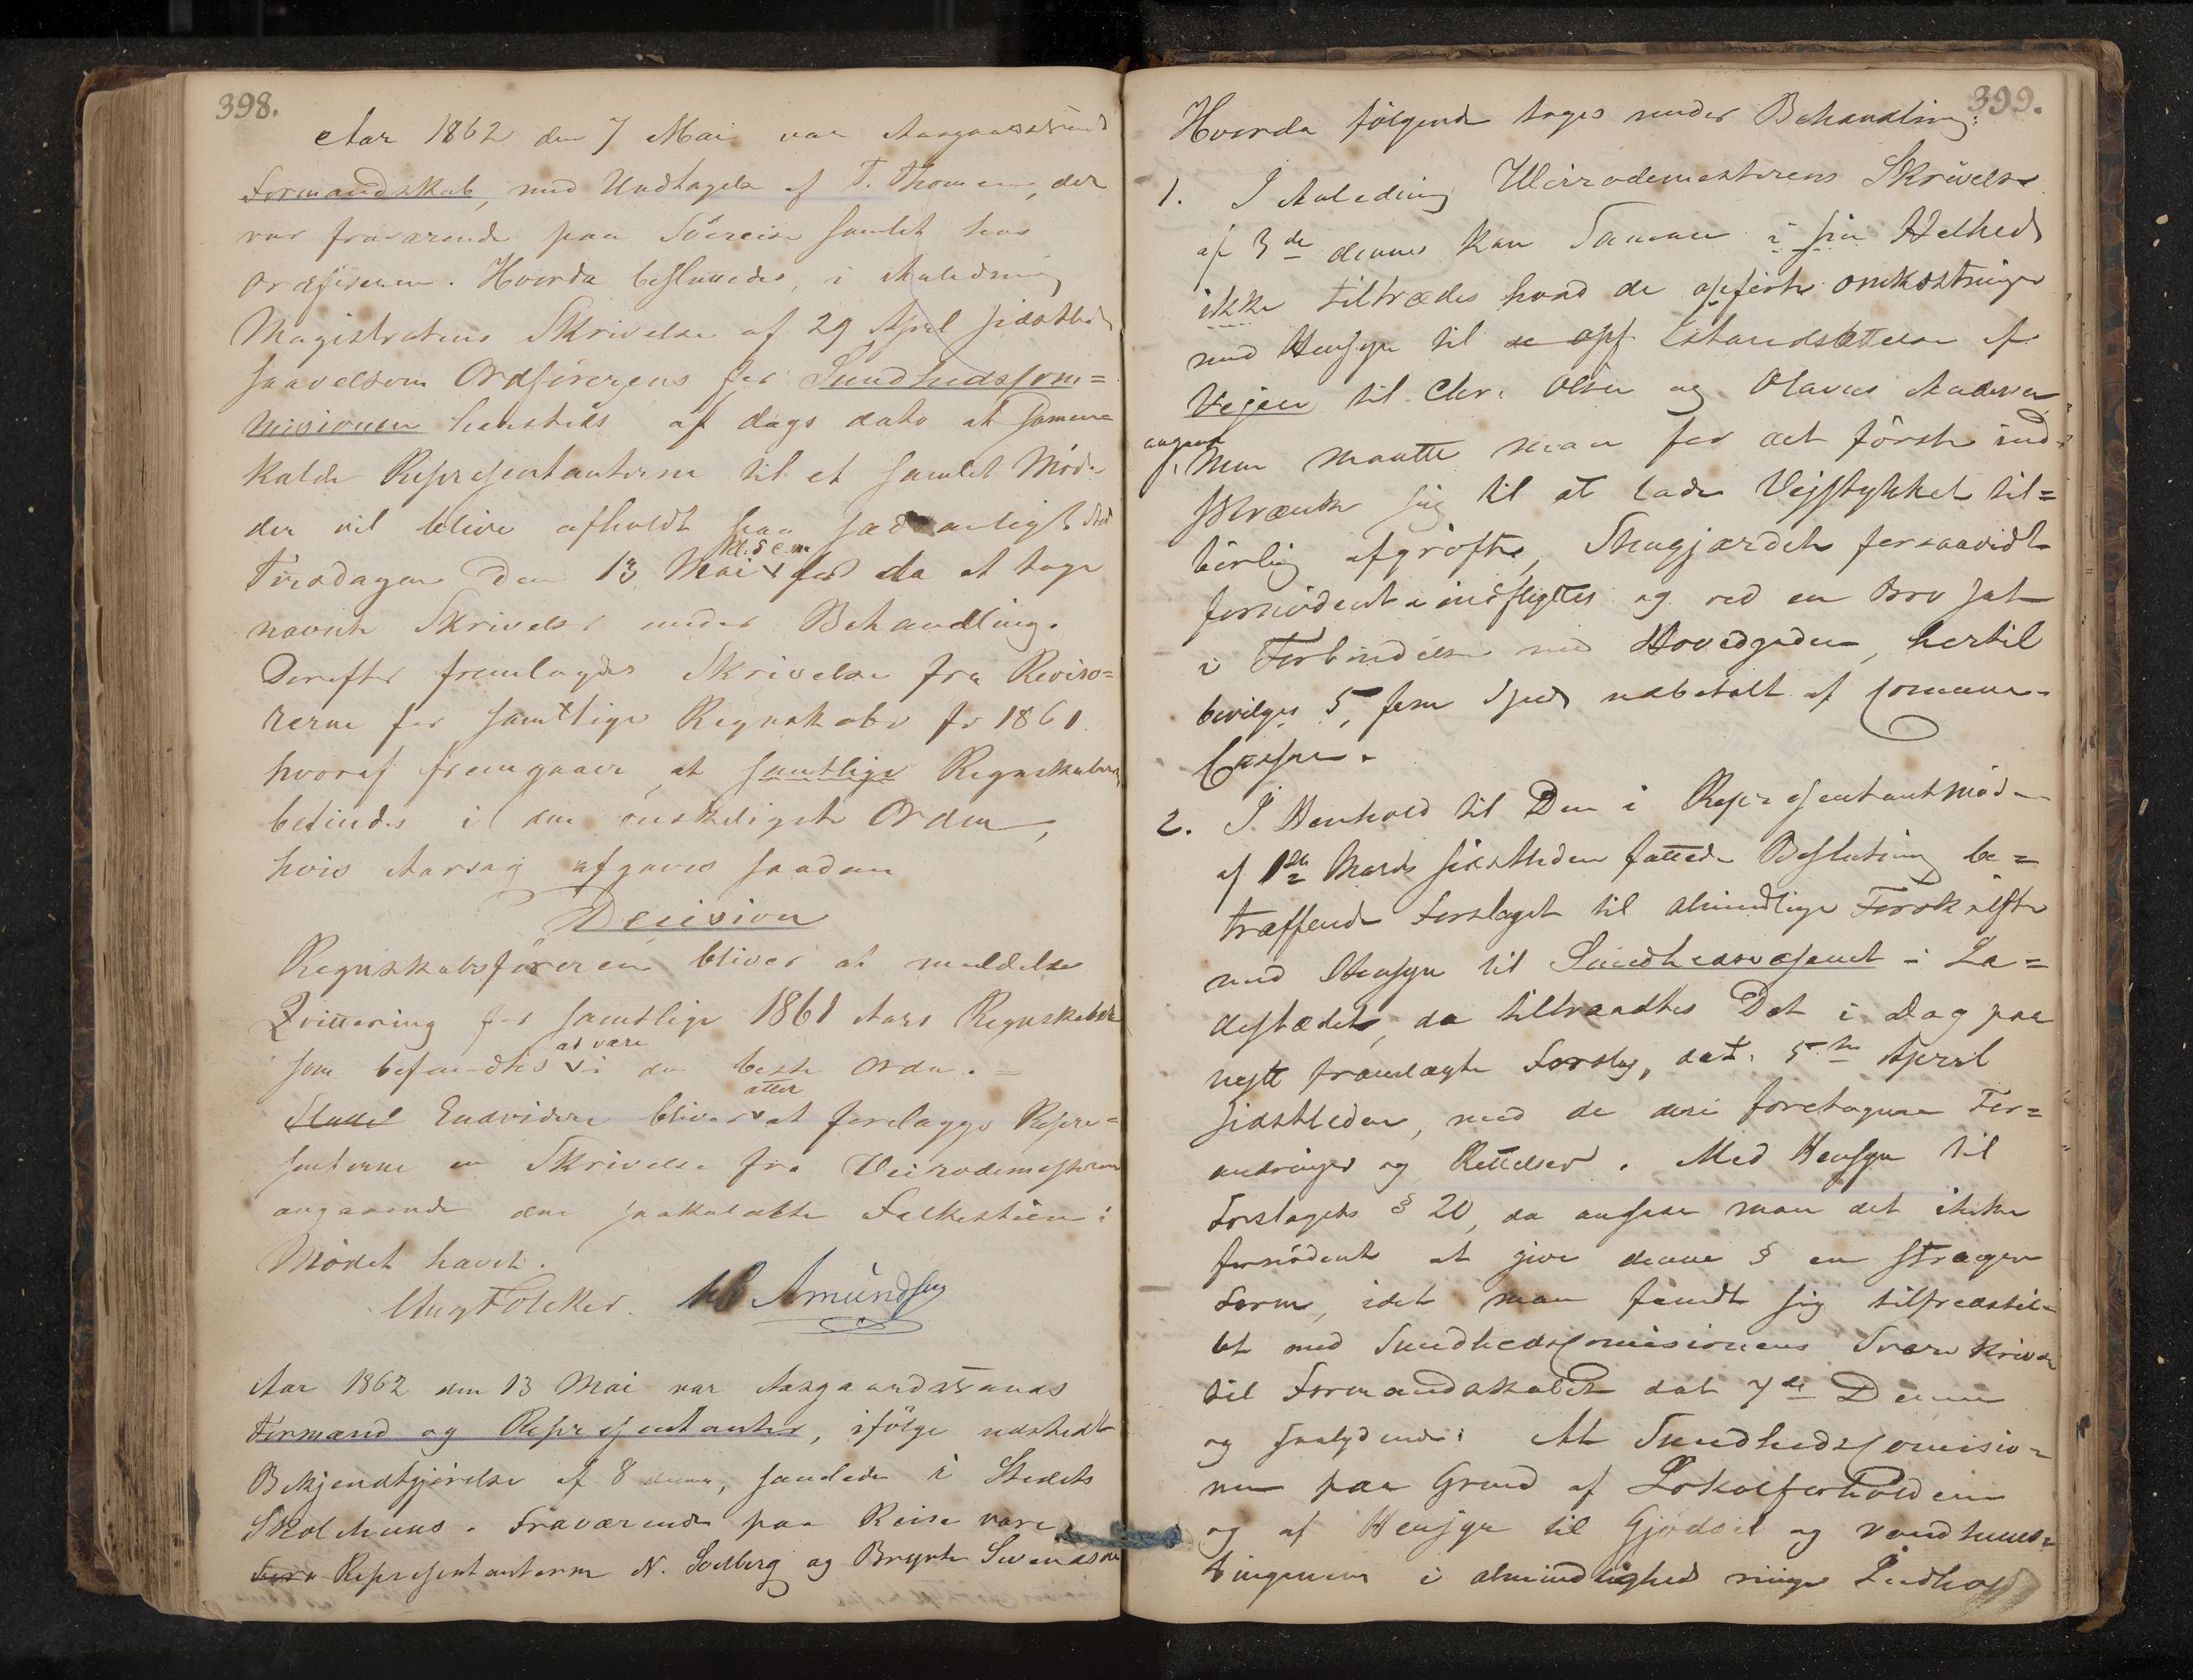 398.
Aar 1862 den 7 Mai var Aasgaardstrands
Formandskab, med Undtagelse af T. Thomesen, der
var fraværende paa Söereise samlet hos
Ordföreren. Hvorda besluttedes, i Anledning
Magistratens Skrivelse af 29 April sidstleden
saavelsom Ordförerens for Sundhedscom=
misionen af dags dato at sammen=
kalde Representanterne til et samlet Möde
der vil blive afholdt paa sædvanligt Sted
Tirsdagen den 13 Mai kl. 5 e.m. for da at tage
nævnte Skrivelser under Behandling.
Derefter fremlagdes Skrivelse fra Reviso=
rerne for samtlige Regnskaber for 1861.
hvoraf fremgaaer, at samtlige Regnskaber
befindes i den önskeligste Orden,
hvis Aarsag afgaves saadan
Decision
Regnskabsföreren bliver at meddele
Qvittering for samtlige 1861 Aars Regnskaber
som befandtes at være i den beste Orden. =
Endvidere bliver atter at forelægge Repre=
senterne en Skrivelse fra Veirodemesteren
angaaende den saakaldte Falkestien i
Mödet hævet.
Aug Fölcker. Amundsen
Aar 1862 den 13 Mai var Aasgaardstrands
Formænd og Representanter, ifölge udstedt
Bekjendtgjörelse af 8 denne, samlede i Stedets
Skolehuus. Fraværende paa Reise vare
Representanterne N. Solberg og Brynte Svendsen
399.
Hvorda fölgende toges under Behandling:
1. I Anledning Weirodemesterens Skrivelse
af 3de dennes kan Samme i sin Helhed
ikke tiltrædes hvad de opförte omkostninger
med Hensyn til de opf Istandsættelse af
Vejen til Chr. Olsen og Olavus Andersen
angaar, Men maatte man for det förste ind=
skrænke sig til at lade Vejstykket til=
börlig afgröftes, Skugjærdet forsaavidt
fornödent indflyttes og ved en Bro sat
i Forbindelse med Hovedgaden, hertil
bevilges 5, fem Spd udbetalt af Commune=
Cassen.
2. I Henhold til Den i Representantmöde
af 1ste Marts sidstleden fattede Beslutning be=
træffende Forslaget til almindlige Forskrifter
med Hensyn til Sundhedsvæsenet i La=
destædet, da tiltraadtes Det i Dag paa
nytt fremlagte Forslag, dat. 5te April
sidstleden, med de deri foretagne For=
andringer og Rettelser. Med Hensyn til
Forslagets § 20, da ansaae man det ikke
fornödent at give denne § en strænger
Form, idet man fandt sig tilfredsstil=
let med Sundhedscomisionens Svarskrivelse
til Formandskabet dat 7de Denne
og saalydende: At Sundhedscomisio=
nen paa Grund af Lokalforholdene
og af Hensyn til Gjödsel og
i almindlighed ringe Indhold